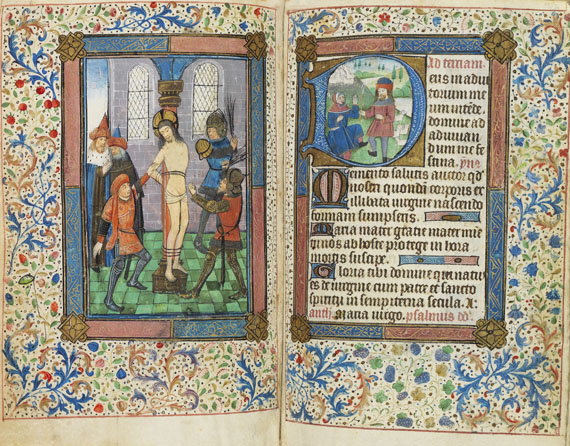 Ad terciam.
Deus in adiu
torium me
um intēde.
domine ad
adiuuan
dum me fe
stina.
Memento salutis auctor qd
nostri quondā corporis ex
illibata uirgine nascendo
formam sumpseris.
Maria mater gratie mater mie
nos ab hoste protege in hora
mortis suscipe
Gloria tibi domine qui natus
es de uirgine cum patre et sancto
spiritu in sempiterna secula. A.
anth. Maria uirgo. psalmus dd.